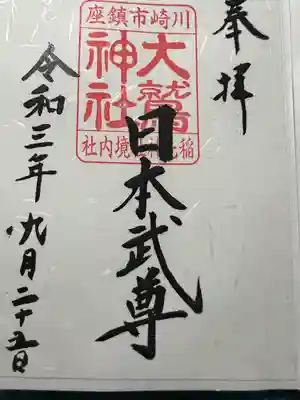 奉拝
川崎市鎮座
大鷲神社
稲毛神社境内社
日本武尊
令和三年九月二十五日